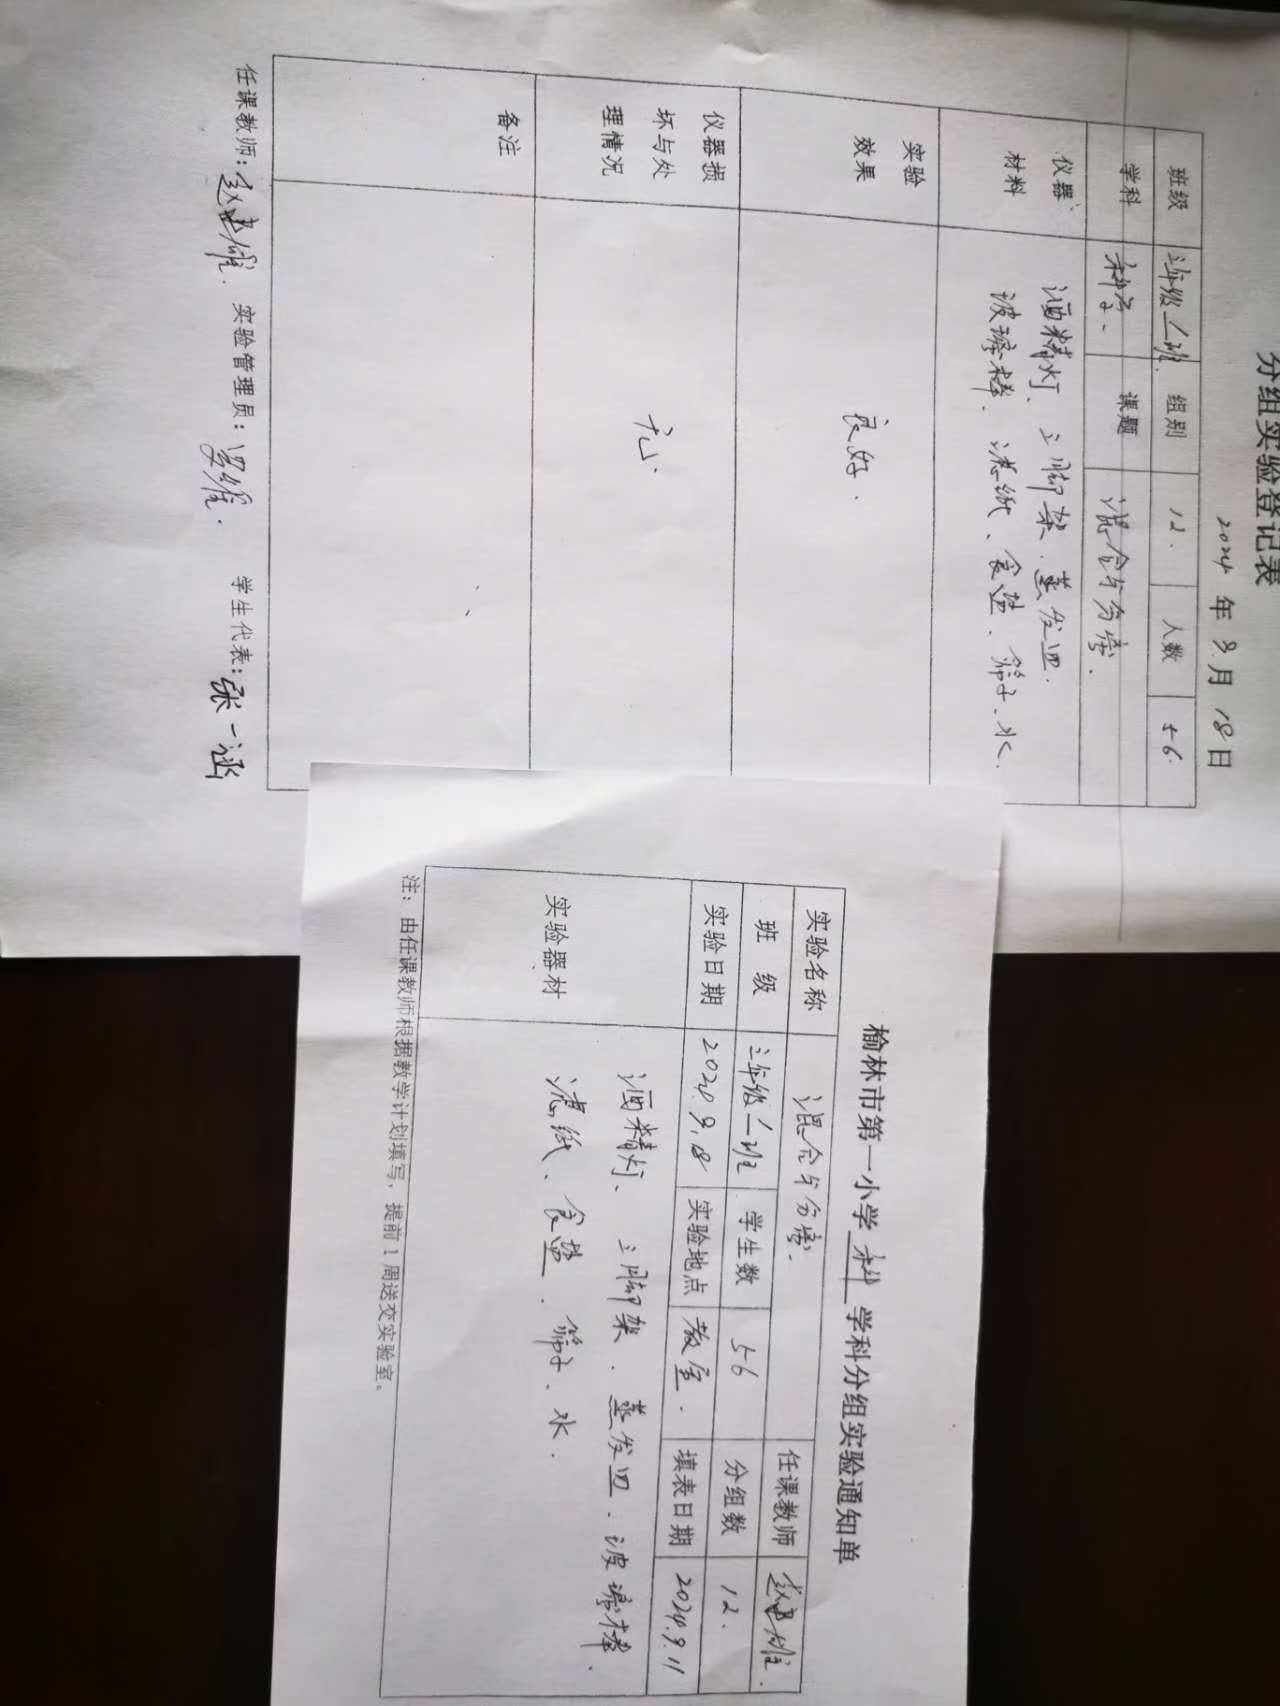 分组实验登记表
2024 年 9 月 18 日
班级 三年级 班 组别 12. 人数 56.
学科 科学. 课题 混合与分离.
仪器 材料 酒精灯、三脚架、蒸发皿.
玻璃棒、滤纸、食盐、筛子、水.
实验
效果 良好.
仪器损
坏与处
理情况 无.
备注
任课教师: 赵 雄. 实验管理员: 雄. 学生代表: 张一涵
榆林市第一小学 科 学科分组实验通知单
实验名称 混合与分离. 任课教师 赵 雄.
班 级 三年级 班 学生数 56 分组数 12.
实验日期 2024.9.18 实验地点 教室. 填表日期 2024.9.11
实验器材 酒精灯、三脚架、蒸发皿、玻璃棒、
滤纸、食盐、筛子、水.
注: 由任课教师根据教学计划填写, 提前 1 周送交实验室。